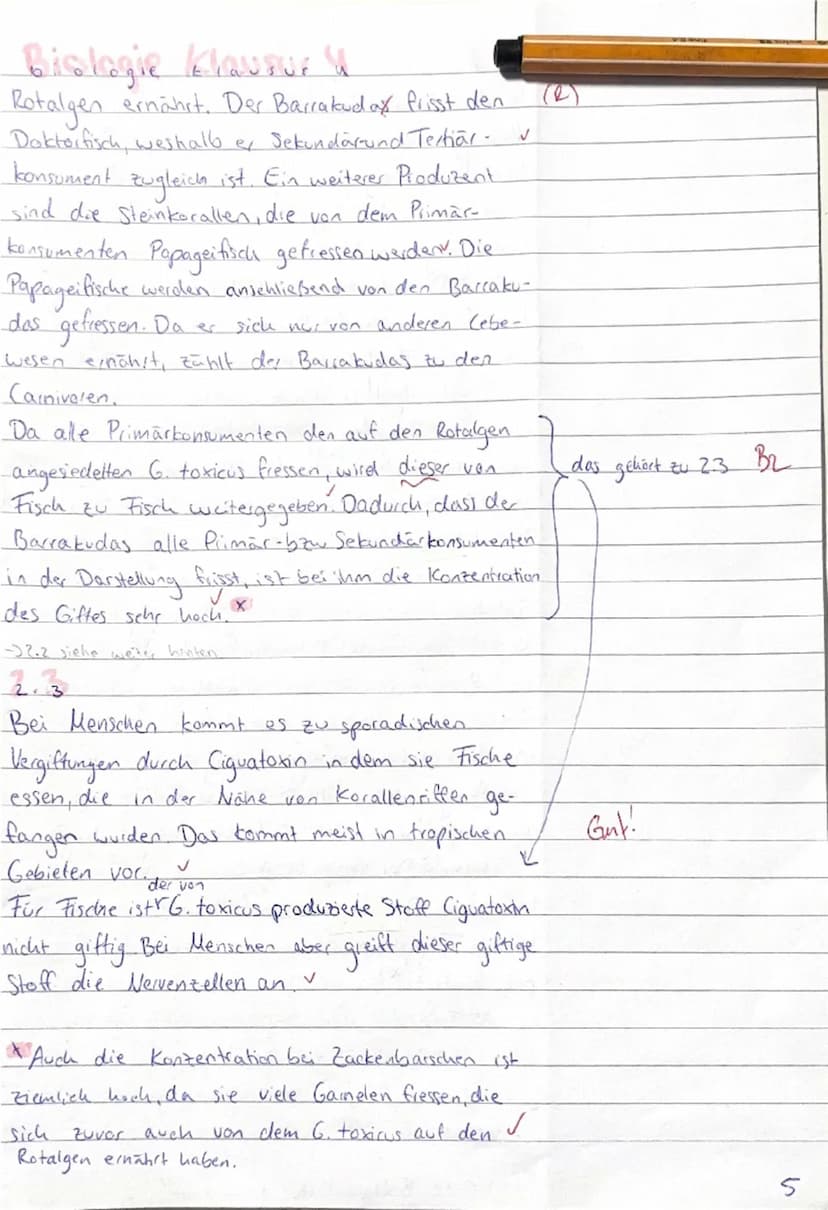 Biologie Klausur 4
Rotalgen ernährt. Der Barrakudas frisst den (R)
Doktorfisch, weshalb er Sekundär und Tertiär-
konsument zugleich ist. Ein weiterer Produzent
sind die Steinkorallen, die von dem Primär-
konsumenten Papageifisch gefressen werden. Die
Papageifische werden anschließend von den Barraku-
das gefressen. Da er sich nur von anderen Lebe-
wesen ernährt, zählt der Barrakudas zu den
Carnivoren.
Da alle Primärkonsumenten den auf den Rotalgen
angesiedelten G. toxicus fressen, wird dieser von
das gehört zu 2.3 Bz
Fisch zu Fisch weitergegeben. Dadurch, dass der
Barrakudas alle Primär- bzw Sekundärkonsumenten
in der Darstellung frisst, ist bei ihm die Konzentration
des Giftes sehr hoch. x
→ 2.2 siehe weiter hinten
2.3
Bei Menschen kommt es zu sporadischen
Vergiftungen durch Ciguatoxin in dem sie Fische
essen, die in der Nähe von Korallenriffen ge-
fangen wurden. Das kommt meist in tropischen
Gut!
Gebieten vor.
der von
Für Fische ist G. toxicus produzierte Stoff Ciguatoxin
nicht giftig. Bei Menschen aber greift dieser giftige
Stoff die Nervenzellen an.
x Auch die Konzentration bei Zackenbarschen ist
ziemlich hoch, da sie viele Garnelen fressen, die
sich zuvor auch von dem G. toxicus auf den
Rotalgen ernährt haben.
5